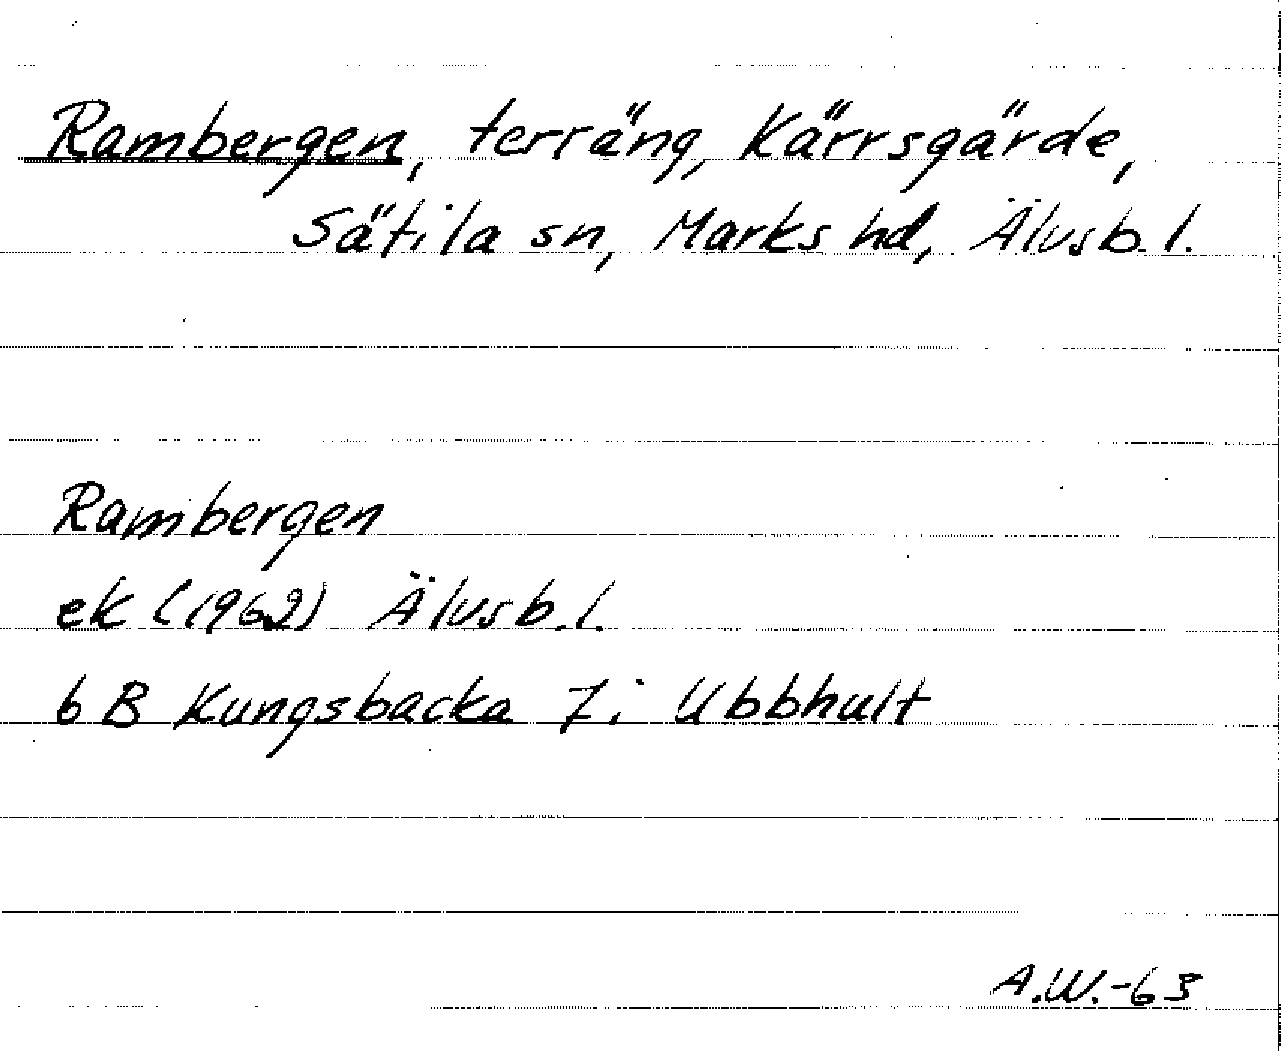 Rambergen, terräng, Kärrsgärde,
Sätila sn, Marks hd, Älvsb. l.
Rambergen
ek (1962) Älvsb. l.
6 B Kungsbacka 7i Ubbhult
A.W.-63